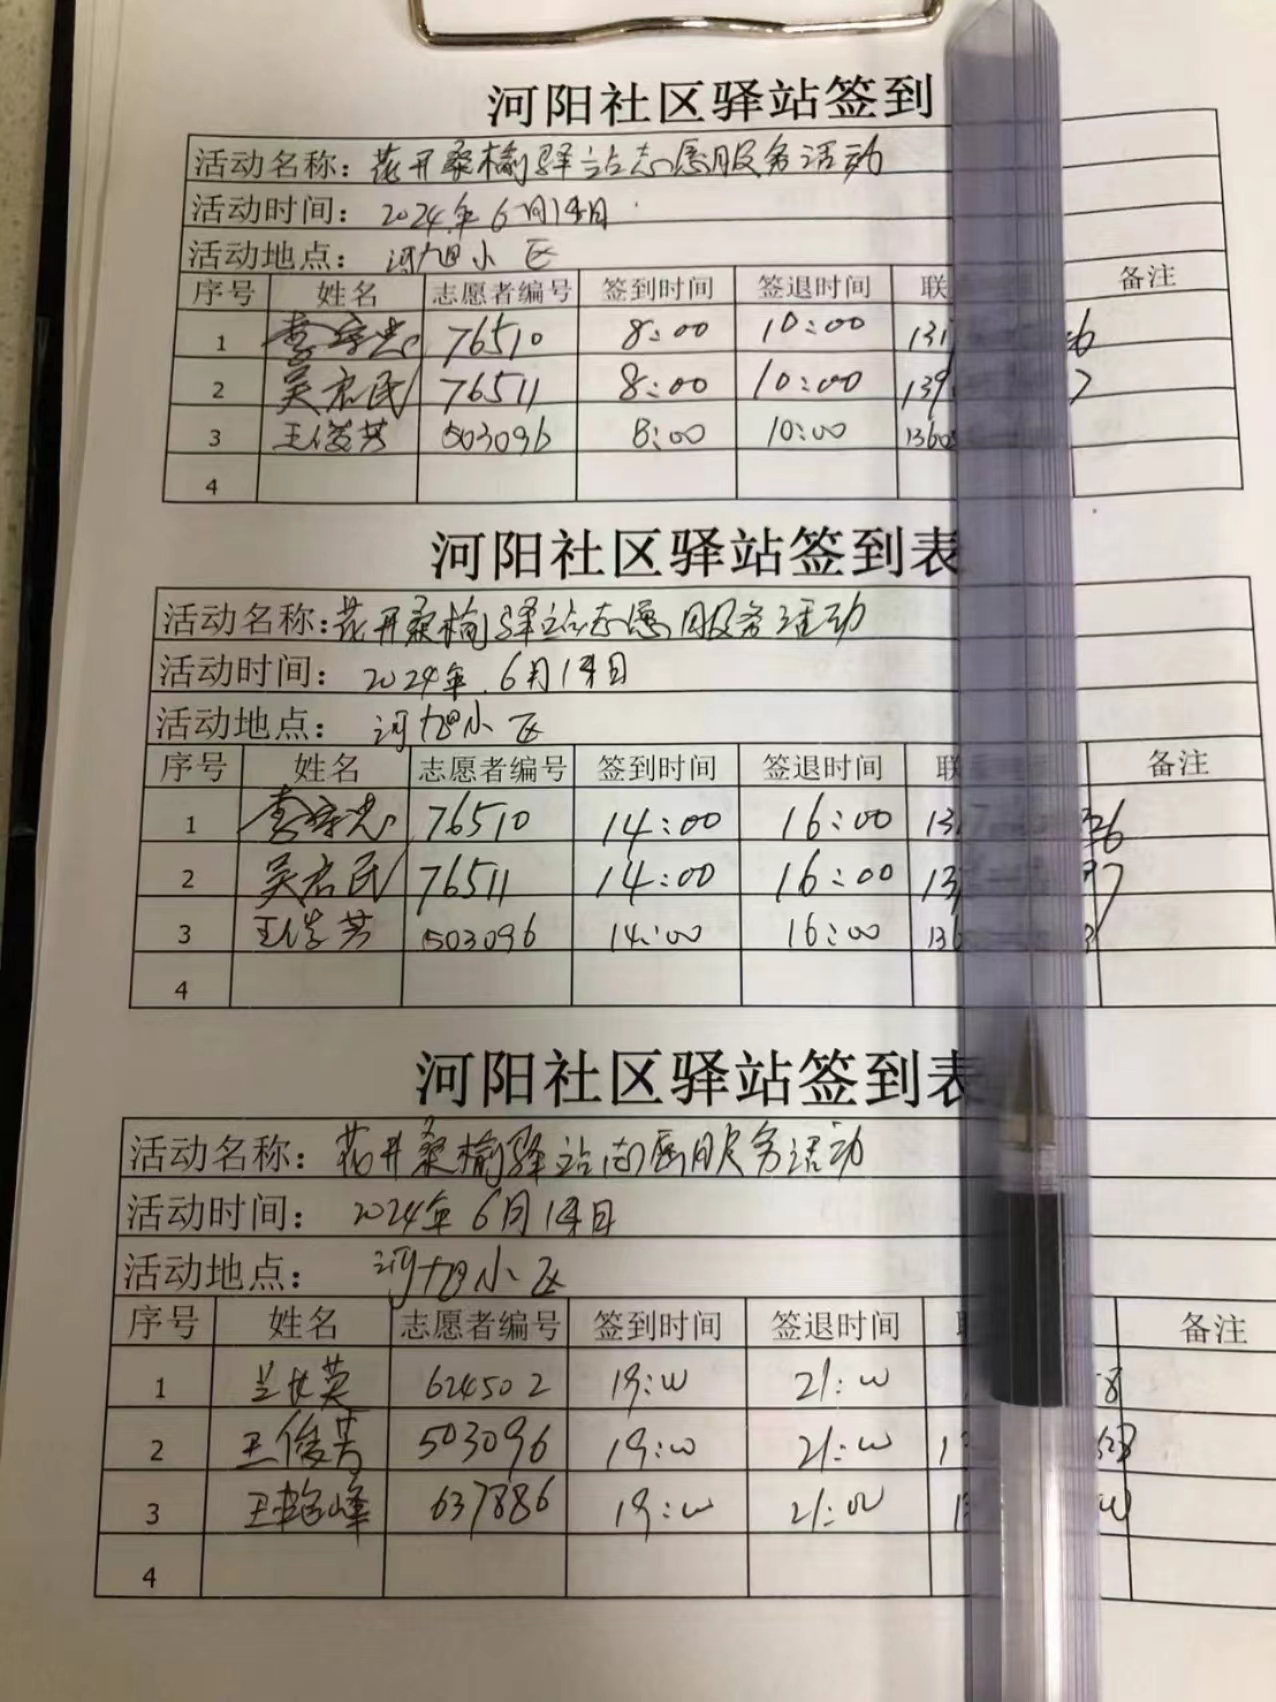 河阳社区驿站签到
活动名称：花开桑榆驿站志愿服务活动
活动时间： 2024年6月14日
活动地点： 河旭小区
序号 姓名 志愿者编号 签到时间 签退时间 联 备注
1 76510 8:00 10:00 131 6
2 吴启民 76511 8:00 10:00 139 7
3 王俊芳 503096 8:00 10:00 1360
4
河阳社区驿站签到表
活动名称：花开桑榆驿站志愿服务活动
活动时间： 2024年6月14日
活动地点： 河旭小区
序号 姓名 志愿者编号 签到时间 签退时间 联 备注
1 76510 14:00 16:00 13 36
2 吴启民 76511 14:00 16:00 13 97
3 王俊芳 503096 14:00 16:00 136
4
河阳社区驿站签到表
活动名称： 花开桑榆驿站志愿服务活动
活动时间： 2024年6月14日
活动地点： 河旭小区
序号 姓名 志愿者编号 签到时间 签退时间 备注
1 兰长英 624502 19:00 21:00 8
2 王俊芳 503096 19:00 21:00 1
3 峰 637886 19:00 21:00
4